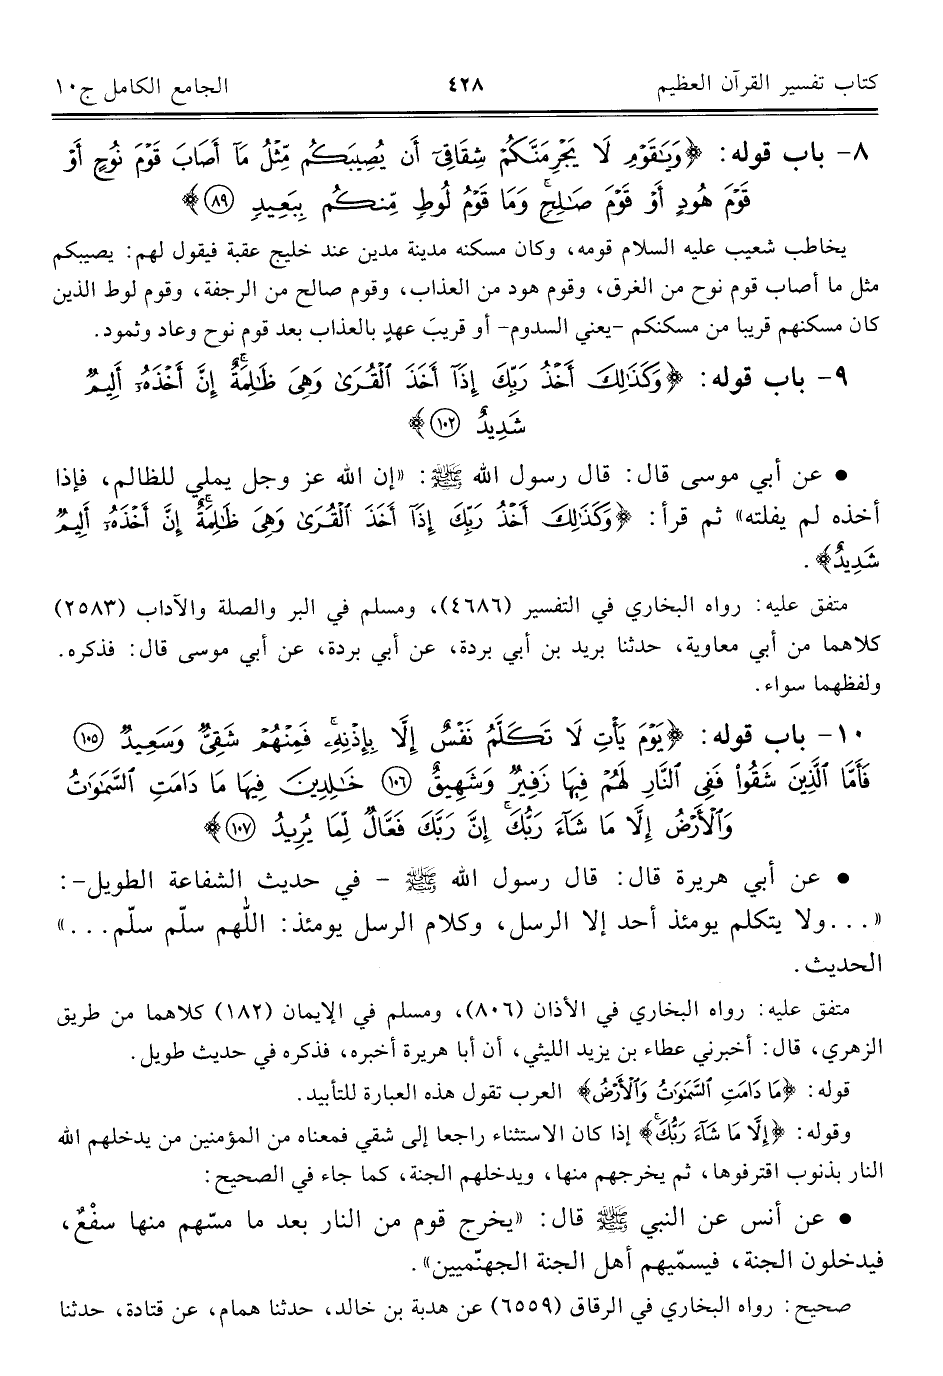 كتاب تفسير القرآن العظيم ٤٢٨ الجامع الكامل ج١٠
٨- باب قوله: ﴿وَيَٰقَوۡمِ لَا يَجۡرِمَنَّكُمۡ شِقَاقِيٓ أَن يُصِيبَكُم مِّثۡلُ مَآ أَصَابَ قَوۡمَ نُوحٍ أَوۡ
قَوۡمَ هُودٍ أَوۡ قَوۡمَ صَٰلِحٖۚ وَمَا قَوۡمُ لُوطٖ مِّنكُم بِبَعِيدٖ ٨٩﴾
يخاطب شعيب عليه السلام قومه، وكان مسكنه مدينة مدين عند خليج عقبة فيقول لهم: يصيبكم
مثل ما أصاب قوم نوح من الغرق، وقوم هود من العذاب، وقوم صالح من الرجفة، وقوم لوط الذين
كان مسكنهم قريبا من مسكنكم -يعني السدوم- أو قريبَ عهدٍ بالعذاب بعد قوم نوح وعاد وثمود.
٩- باب قوله: ﴿وَكَذَٰلِكَ أَخۡذُ رَبِّكَ إِذَآ أَخَذَ ٱلۡقُرَىٰ وَهِيَ ظَٰلِمَةٌۚ إِنَّ أَخۡذَهُۥٓ أَلِيمٞ
شَدِيدٌ ١٠٢﴾
• عن أبي موسى قال: قال رسول الله ﷺ: «إن الله عز وجل يملي للظالم، فإذا
أخذه لم يفلته» ثم قرأ: ﴿وَكَذَٰلِكَ أَخۡذُ رَبِّكَ إِذَآ أَخَذَ ٱلۡقُرَىٰ وَهِيَ ظَٰلِمَةٌۚ إِنَّ أَخۡذَهُۥٓ أَلِيمٞ
شَدِيدٌ﴾.
متفق عليه: رواه البخاري في التفسير (٤٦٨٦)، ومسلم في البر والصلة والآداب (٢٥٨٣)
كلاهما من أبي معاوية، حدثنا بريد بن أبي بردة، عن أبي بردة، عن أبي موسى قال: فذكره.
ولفظهما سواء.
١٠- باب قوله: ﴿يَوۡمَ يَأۡتِ لَا تَكَلَّمُ نَفۡسٌ إِلَّا بِإِذۡنِهِۦۚ فَمِنۡهُمۡ شَقِيّٞ وَسَعِيدٞ ١٠٥
فَأَمَّا ٱلَّذِينَ شَقُواْ فَفِي ٱلنَّارِ لَهُمۡ فِيهَا زَفِيرٞ وَشَهِيقٌ ١٠٦ خَٰلِدِينَ فِيهَا مَا دَامَتِ ٱلسَّمَٰوَٰتُ
وَٱلۡأَرۡضُ إِلَّا مَا شَآءَ رَبُّكَۚ إِنَّ رَبَّكَ فَعَّالٞ لِّمَا يُرِيدُ ١٠٧﴾
• عن أبي هريرة قال: قال رسول الله ﷺ - في حديث الشفاعة الطويل-:
«...ولا يتكلم يومئذ أحد إلا الرسل، وكلام الرسل يومئذ: اللهم سلّم سلّم...»
الحديث.
متفق عليه: رواه البخاري في الأذان (٨٠٦)، ومسلم في الإيمان (١٨٢) كلاهما من طريق
الزهري، قال: أخبرني عطاء بن يزيد الليثي، أن أبا هريرة أخبره، فذكره في حديث طويل.
قوله: ﴿مَا دَامَتِ ٱلسَّمَٰوَٰتُ وَٱلۡأَرۡضُ﴾ العرب تقول هذه العبارة للتأبيد.
وقوله: ﴿إِلَّا مَا شَآءَ رَبُّكَۚ﴾ إذا كان الاستثناء راجعا إلى شقي فمعناه من المؤمنين من يدخلهم الله
النار بذنوب اقترفوها، ثم يخرجهم منها، ويدخلهم الجنة، كما جاء في الصحيح:
• عن أنس عن النبي ﷺ قال: «يخرج قوم من النار بعد ما مسّهم منها سفْعٌ،
فيدخلون الجنة، فيسمّيهم أهل الجنة الجهنّميين».
صحيح: رواه البخاري في الرقاق (٦٥٥٩) عن هدبة بن خالد، حدثنا همام، عن قتادة، حدثنا